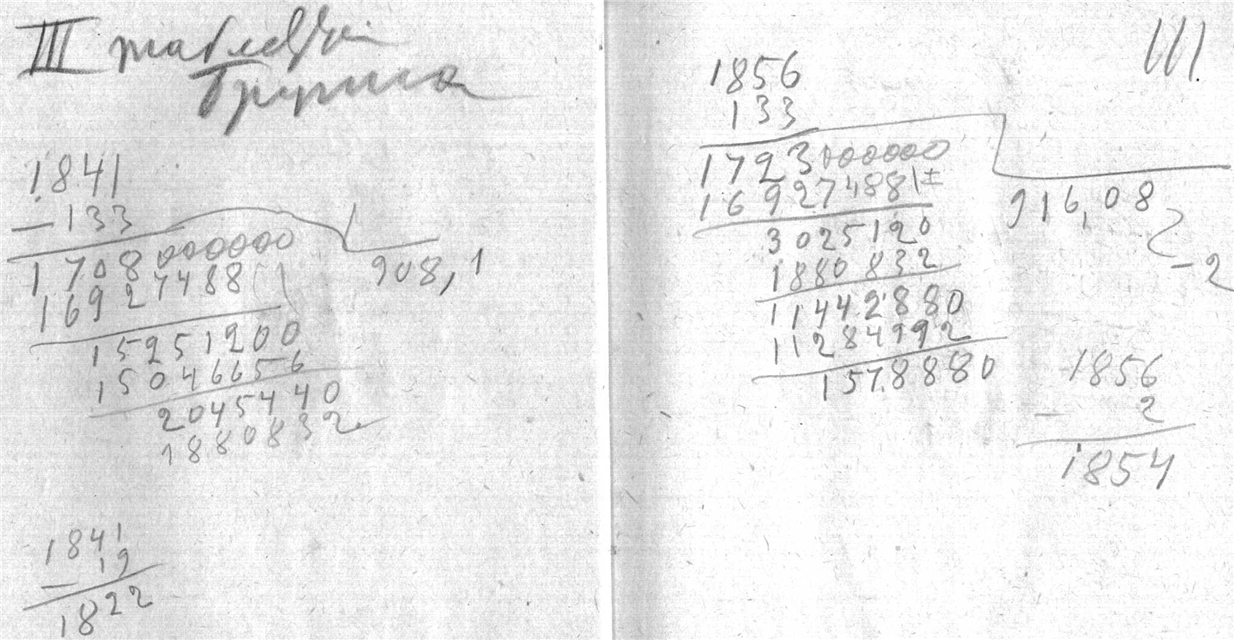 III таблица
Группа
1841
– 133
1708 000000
1692 7488
908,1
15251200
15046656
2045440
1880832
1841
– 19
1822
III
1856
133
1793000000
169274881±
916,08
3025120
1880832
– 2
11442880
11284992
1578880
1856
– 2
1854